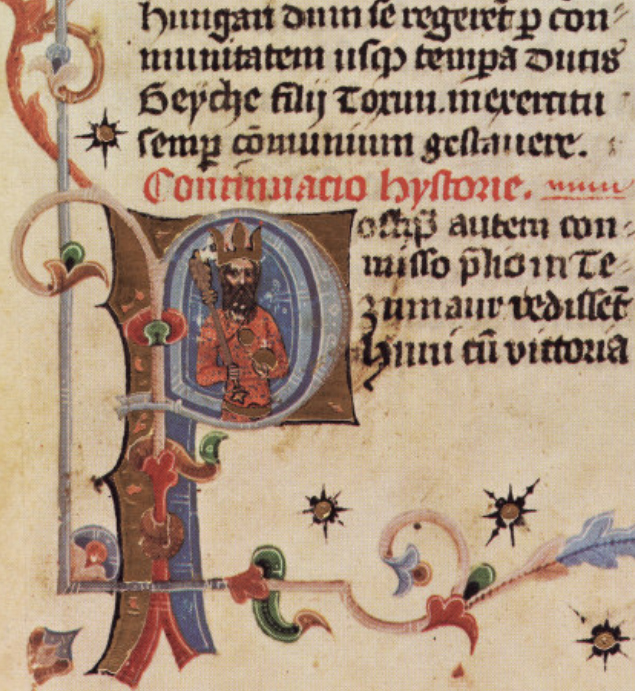 hungari dum se regeret p con
munitatem usqꝫ tempa ducis
Geyche filij Toxun. in exercitu
semp comunium gestauere.
Continuacio hystorie.
Postqꝫ autem con
misso plio in Te
zumaur redissēt
Huni cū victoria